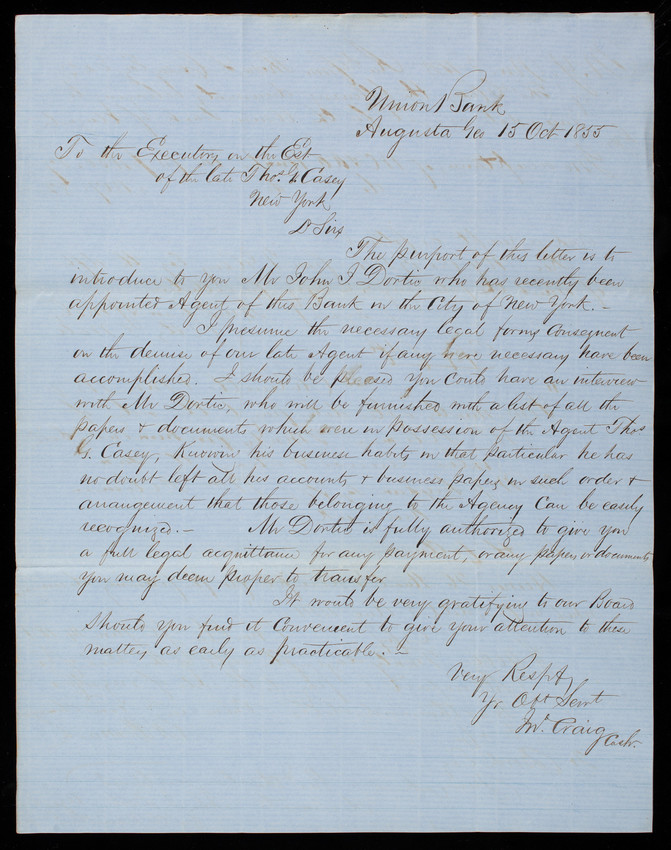 Union Bank
Augusta Ga 15 Oct 1855
To the Executors on the Est
of the late Thos. G. Casey
New York
Dr Sirs
The purport of this letter is to
introduce to you Mr John J Dortic who has recently been
appointed Agent of this Bank in the City of New York.-
I presume the necessary legal forms consequent
on the demise of our late Agent if any were necessary have been
accomplished. I should be pleased you could have an interview
with Mr Dortic, who will be furnished with a list of all the
papers & documents which were in possession of the Agent Thos
G. Casey, Knowing his business habits in that particular he has
no doubt left all his accounts & business papers in such order &
arrangement that those belonging to the Agency can be easily
recognized.- Mr Dortic is fully authorized to give you
a full legal acquittance for any payment, or any papers or documents
you may deem proper to transfer
It would be very gratifying to our Board
should you find it convenient to give your attention to these
matters as early as practicable.-
Very Respty
Yr Obt Servt
Jno. Craig
Cashr.